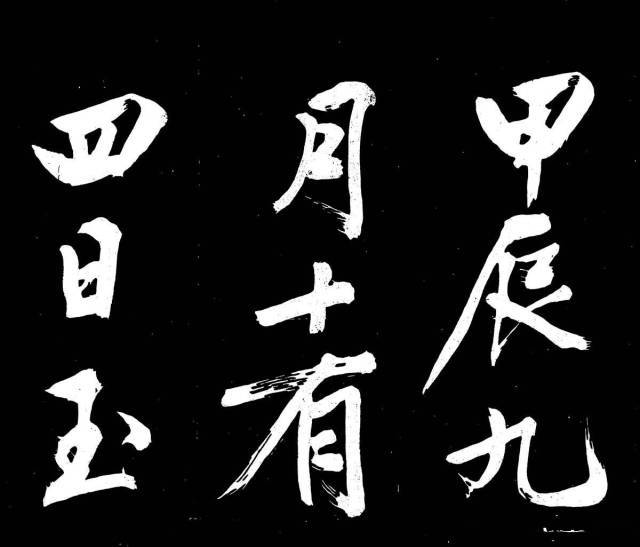 甲辰九
月十有
四日玉